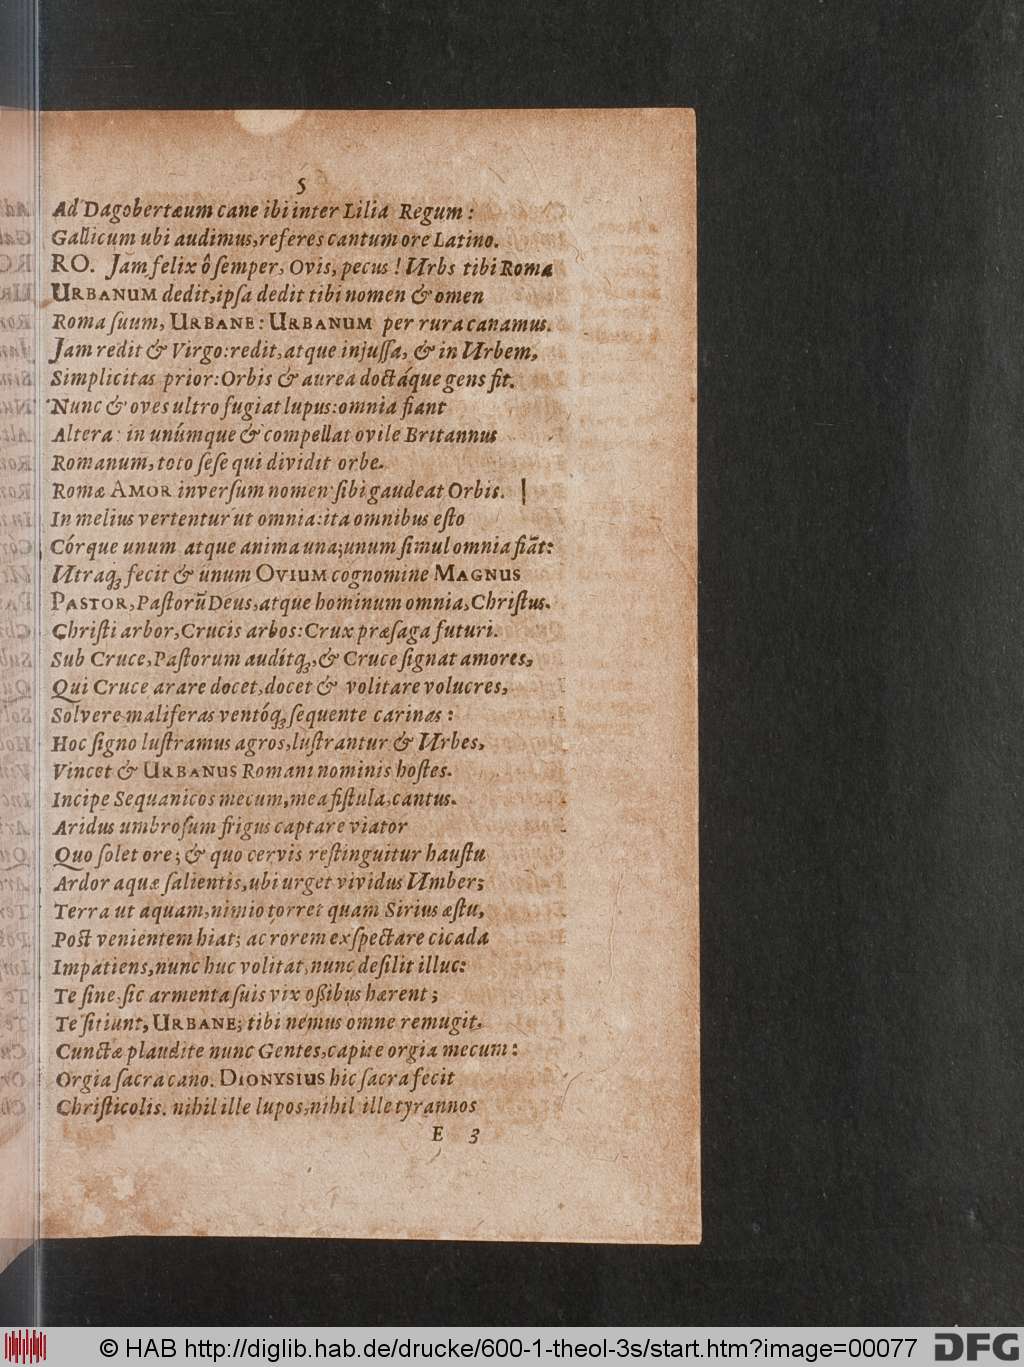 5
Ad Dagobertæum cane ibi inter Lilia Regum:
Gallicum ubi audimus, referes cantum ore Latino.
RO. Jam felix ô semper, Ovis, pecus! Urbs tibi Roma
URBANUM dedit, ipsa dedit tibi nomen & omen
Roma suum, URBANE: URBANUM per rura canamus.
Jam redit & Virgo: redit, atque injussa, & in Urbem,
Simplicitas prior: Orbis & aurea doctáque gens fit.
Nunc & oves ultro fugiat lupus: omnia fiant
Altera: in unúmque & compellat ovile Britannus
Romanum, toto sese qui dividit orbe.
Romæ AMOR inversum nomen sibi gaudeat Orbis.
In melius vertentur ut omnia: ita omnibus esto
Córque unum atque anima una; unum simul omnia fiāt:
Utraq; fecit & unum OVIUM cognomine MAGNUS
PASTOR, Pastorū Deus, atque hominum omnia, Christus.
Christi arbor, Crucis arbos: Crux præsaga futuri.
Sub Cruce, Pastorum auditq;, & Cruce signat amores,
Qui Cruce arare docet, docet & volitare volucres,
Solvere maliferas ventóq; sequente carinas:
Hoc signo lustramus agros, lustrantur & Urbes,
Vincet & URBANUS Romani nominis hostes.
Incipe Sequanicos mecum, mea fistula, cantus.
Aridus umbrosum frigus captare viator
Quo solet ore; & quo cervis restinguitur haustu
Ardor aquæ salientis, ubi urget vividus Umber;
Terra ut aquam, nimio torret quam Sirius æstu,
Post venientem hiat; ac rorem exspectare cicada
Impatiens, nunc huc volitat, nunc desilit illuc:
Te sine, sic armenta suis vix ossibus hærent;
Te sitiunt, URBANE; tibi nemus omne remugit.
Cunctæ plaudite nunc Gentes, capite orgia mecum:
Orgia sacra cano. DIONYSIUS hic sacra fecit
Christicolis. nihil ille lupos, nihil ille tyrannos
E 3
© HAB http://diglib.hab.de/drucke/600-1-theol-3s/start.htm?image=00077
DFG